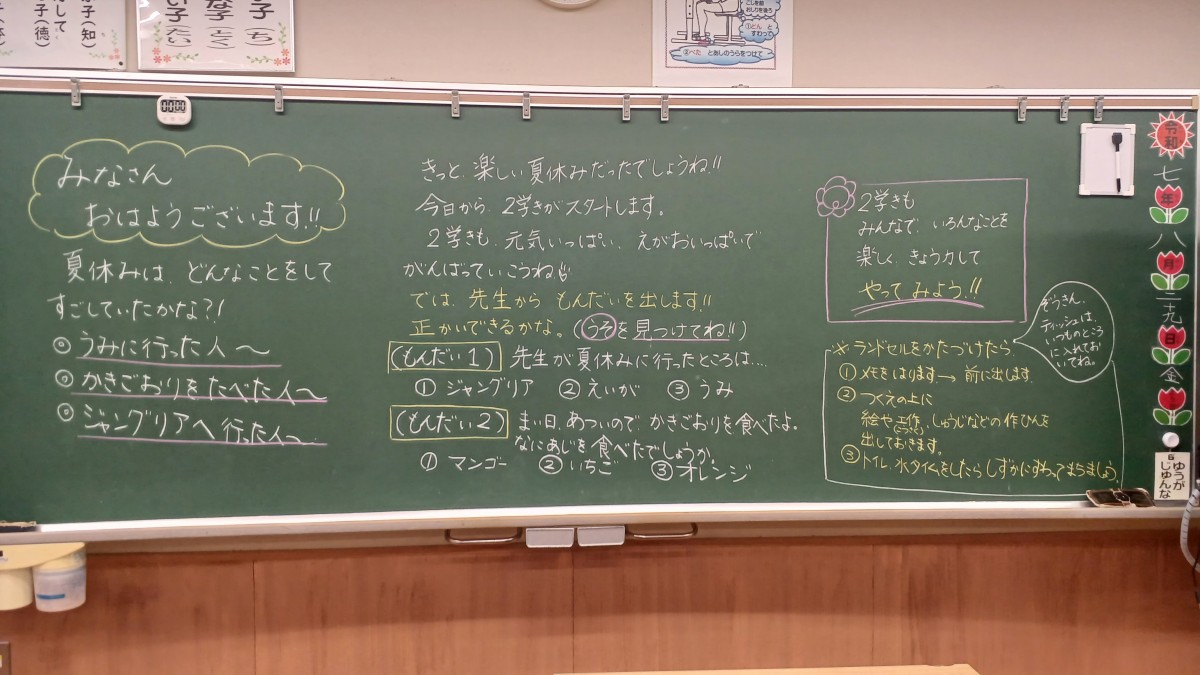 子(知)
して
子(徳)
子(ち)
な子(とく)
い子(たい)
こしを前
おしりを後ろ
①とん と
すわって
②ぺた とあしのうらをつけて
00:00
みなさん
おはようございます!!
夏休みは、どんなことをして
すごしていたかな?!
◎うみに行った人〜
◎かきごおりをたべた人〜
◎ジャングリアへ行った人〜
きっと、楽しい夏休みだったでしょうね!!
今日から、2学きがスタートします。
2学きも、元気いっぱい、えがおいっぱいで
がんばっていこうね!!
では、先生から もんだいを出します!!
正かいできるかな。(うそを見つけてね!!)
(もんだい1) 先生が夏休みに行ったところは…
① ジャングリア ② えいが ③ うみ
(もんだい2) まい日、あついので、かきごおりを食べたよ。
なにあじを食べたでしょうか。
① マンゴー ② いちご ③ オレンジ
2学きも
みんなで、いろんなことを
楽しく、きょう力して
やってみよう!!
ぞうさん、
ティッシュは、
いつものところ
に入れてお
いてね。
※ランドセルをかたづけたら
① メモをはります→ 前に出します
② つくえの上に
絵や工作、しゅうじなどの作ひんを
出しておきます。
③ トイレ、水タイムをしたら しずかにすわってまちましょう。
令和
七
年
八
月
二十九
日
金
6
ゆうが
じゅんな